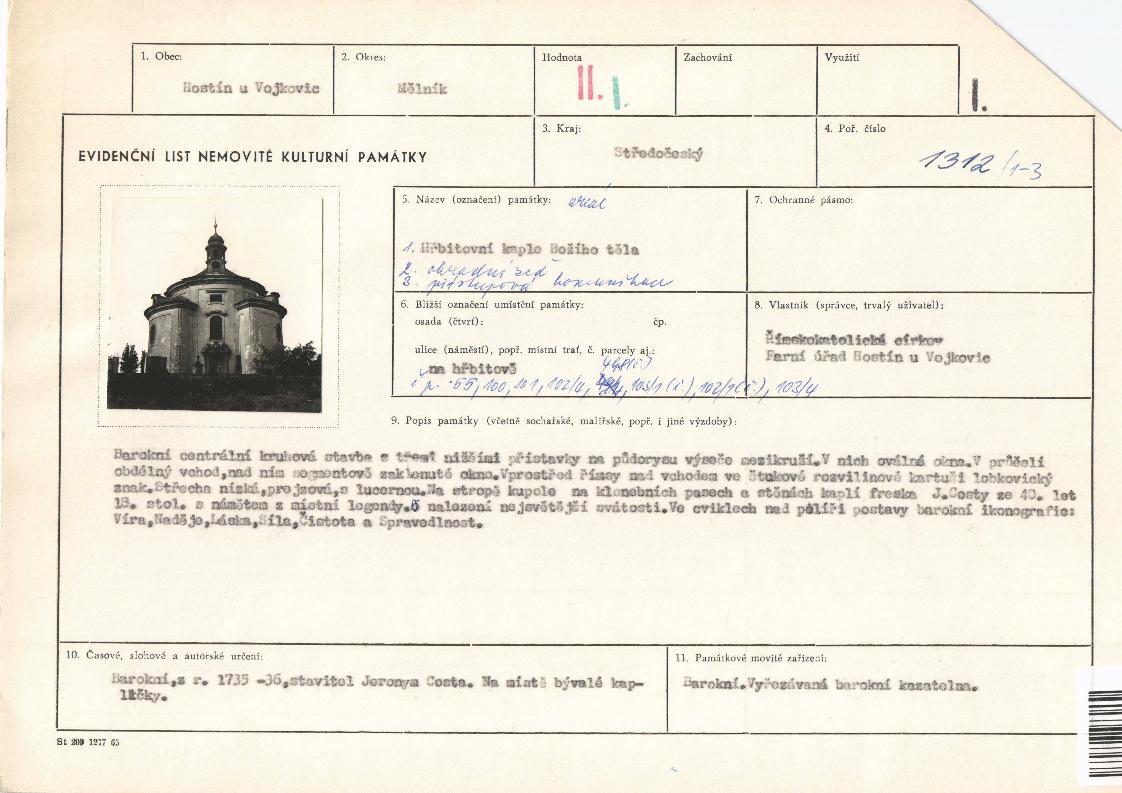 1. Obec:
Hostín u Vojkovic
2. Okres:
Mělník
Hodnota
II. I.
Zachování
Využití
I.
EVIDENČNÍ LIST NEMOVITÉ KULTURNÍ PAMÁTKY
3. Kraj:
Středočeský
4. Poř. číslo
1312/1-3
5. Název (označení) památky: areál
1. Hřbitovní kaple Božího těla
2. ohradní zeď
3. přístupová komunikace
7. Ochranné pásmo:
6. Bližší označení umístění památky:
osada (čtvrť): čp.
ulice (náměstí), popř. místní trať, č. parcely aj.:
na hřbitově
č. p. 99, 100, 101, 102/4, 103/1 (č.), 102/1 (č.), 103/4
8. Vlastník (správce, trvalý uživatel):
Římskokatolická církev
Farní úřad Hostín u Vojkovic
9. Popis památky (včetně sochařské, malířské, popř. i jiné výzdoby):
Barokní centrální kruhová stavba s třemi nižšími přístavky na půdorysu výseče mezikruží.V nich oválná okna.V průčelí
obdélný vchod,nad ním segmentově zaklenuté okno.Vprostřed římsy nad vchodem ve štukové rozvilinové kartuši lobkovický
znak.Střecha nízká,prejzová,s lucernou.Na stropě kupole na klenebních pasech a stěnách kaplí freska J.Costy ze 40. let
18. stol. s námětem z místní legendy.O nalezení nejsvětější svátosti.Ve cviklech nad pilíři postavy barokní ikonografie:
Víra,Naděje,Láska,Síla,Čistota a Spravedlnost.
10. Časové, slohové a autorské určení:
Barokní,z r. 1735 -36,stavitel Jeronym Costa. Na místě bývalé kap-
ličky.
11. Památkové movité zařízení:
Barokní.Vyřezávaná barokní kazatelna.
St 209 1277 65